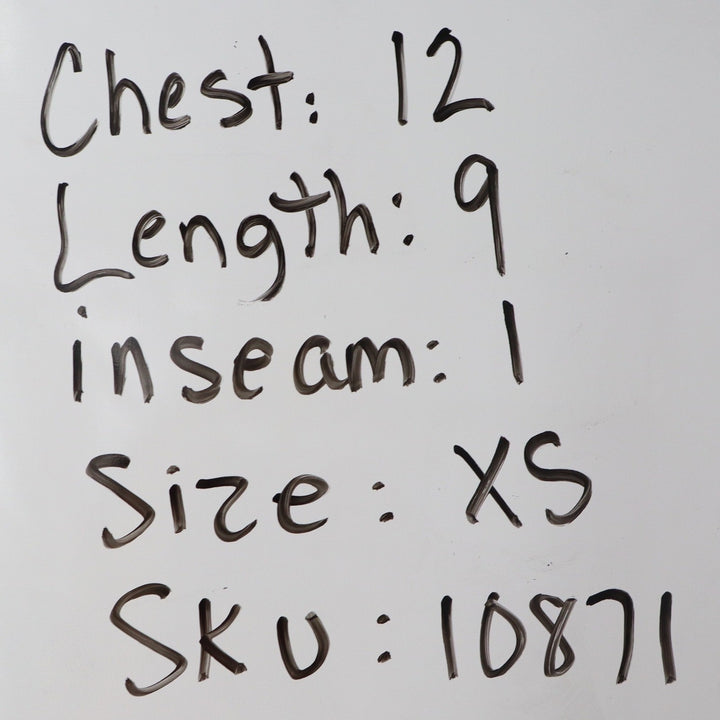 Chest: 12
Length: 9
inseam: 1
Size: XS
SKU: 10871